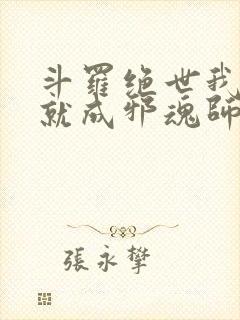 斗羅絶世我
就成邪魂師
張永攀